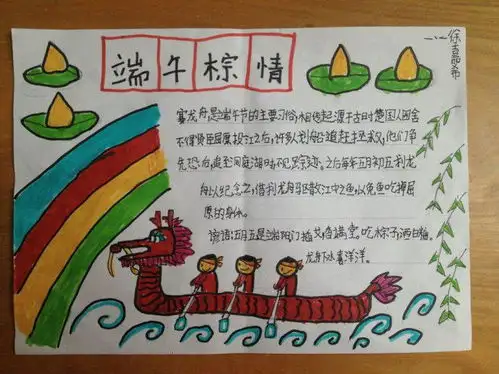 端午棕情
一.一 徐
赛龙舟,是端午节的主要习俗,相传起源于古时楚国人因舍
不得贤臣屈原投江之后,许多人划船追赶拯救,他们争
先恐后,追至洞庭湖时不见踪迹。之后每年五月初五划龙
舟以纪念之,借划龙舟驱散江中之鱼,以免鱼吃掉屈
原的身体。
谚语:五月五是端阳,门插艾,香满堂。吃粽子,洒白糖。
龙舟下水喜洋洋。